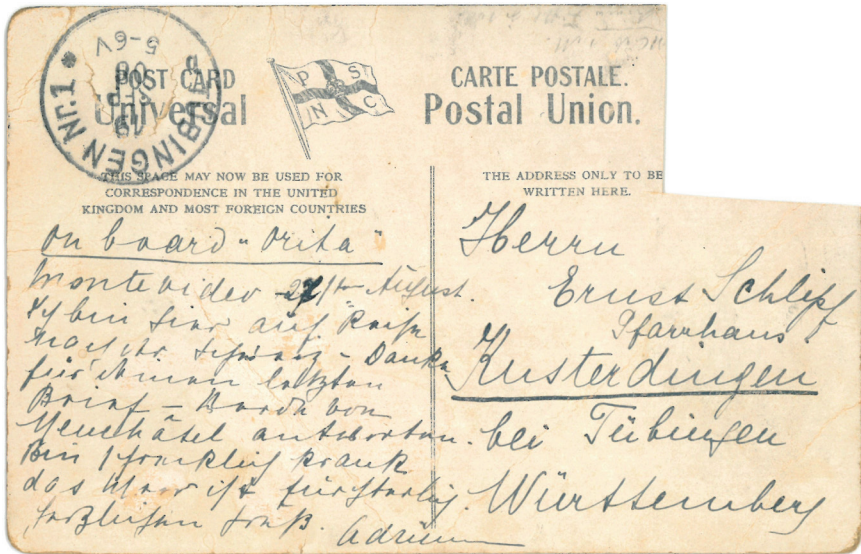 TÜBINGEN Nr. 1 *
19 SEP 08
5-6V
POST CARD
Universal
P S N C
CARTE POSTALE.
Postal Union.
THIS SPACE MAY NOW BE USED FOR
CORRESPONDENCE IN THE UNITED
KINGDOM AND MOST FOREIGN COUNTRIES
THE ADDRESS ONLY TO BE
WRITTEN HERE.
on board "Orita"
Montevideo August.
Ich bin hier auf Reise
nach der Schweiz - Danke
für Ihren letzten
Brief - Werde von
Neuchâtel antworten.
Bin schrecklich krank
das Meer ist fürchterlich.
Herzlichen Gruß.
Herrn
Ernst Schlipf
Pfarrhaus
Kusterdingen
bei Tübingen
Württemberg